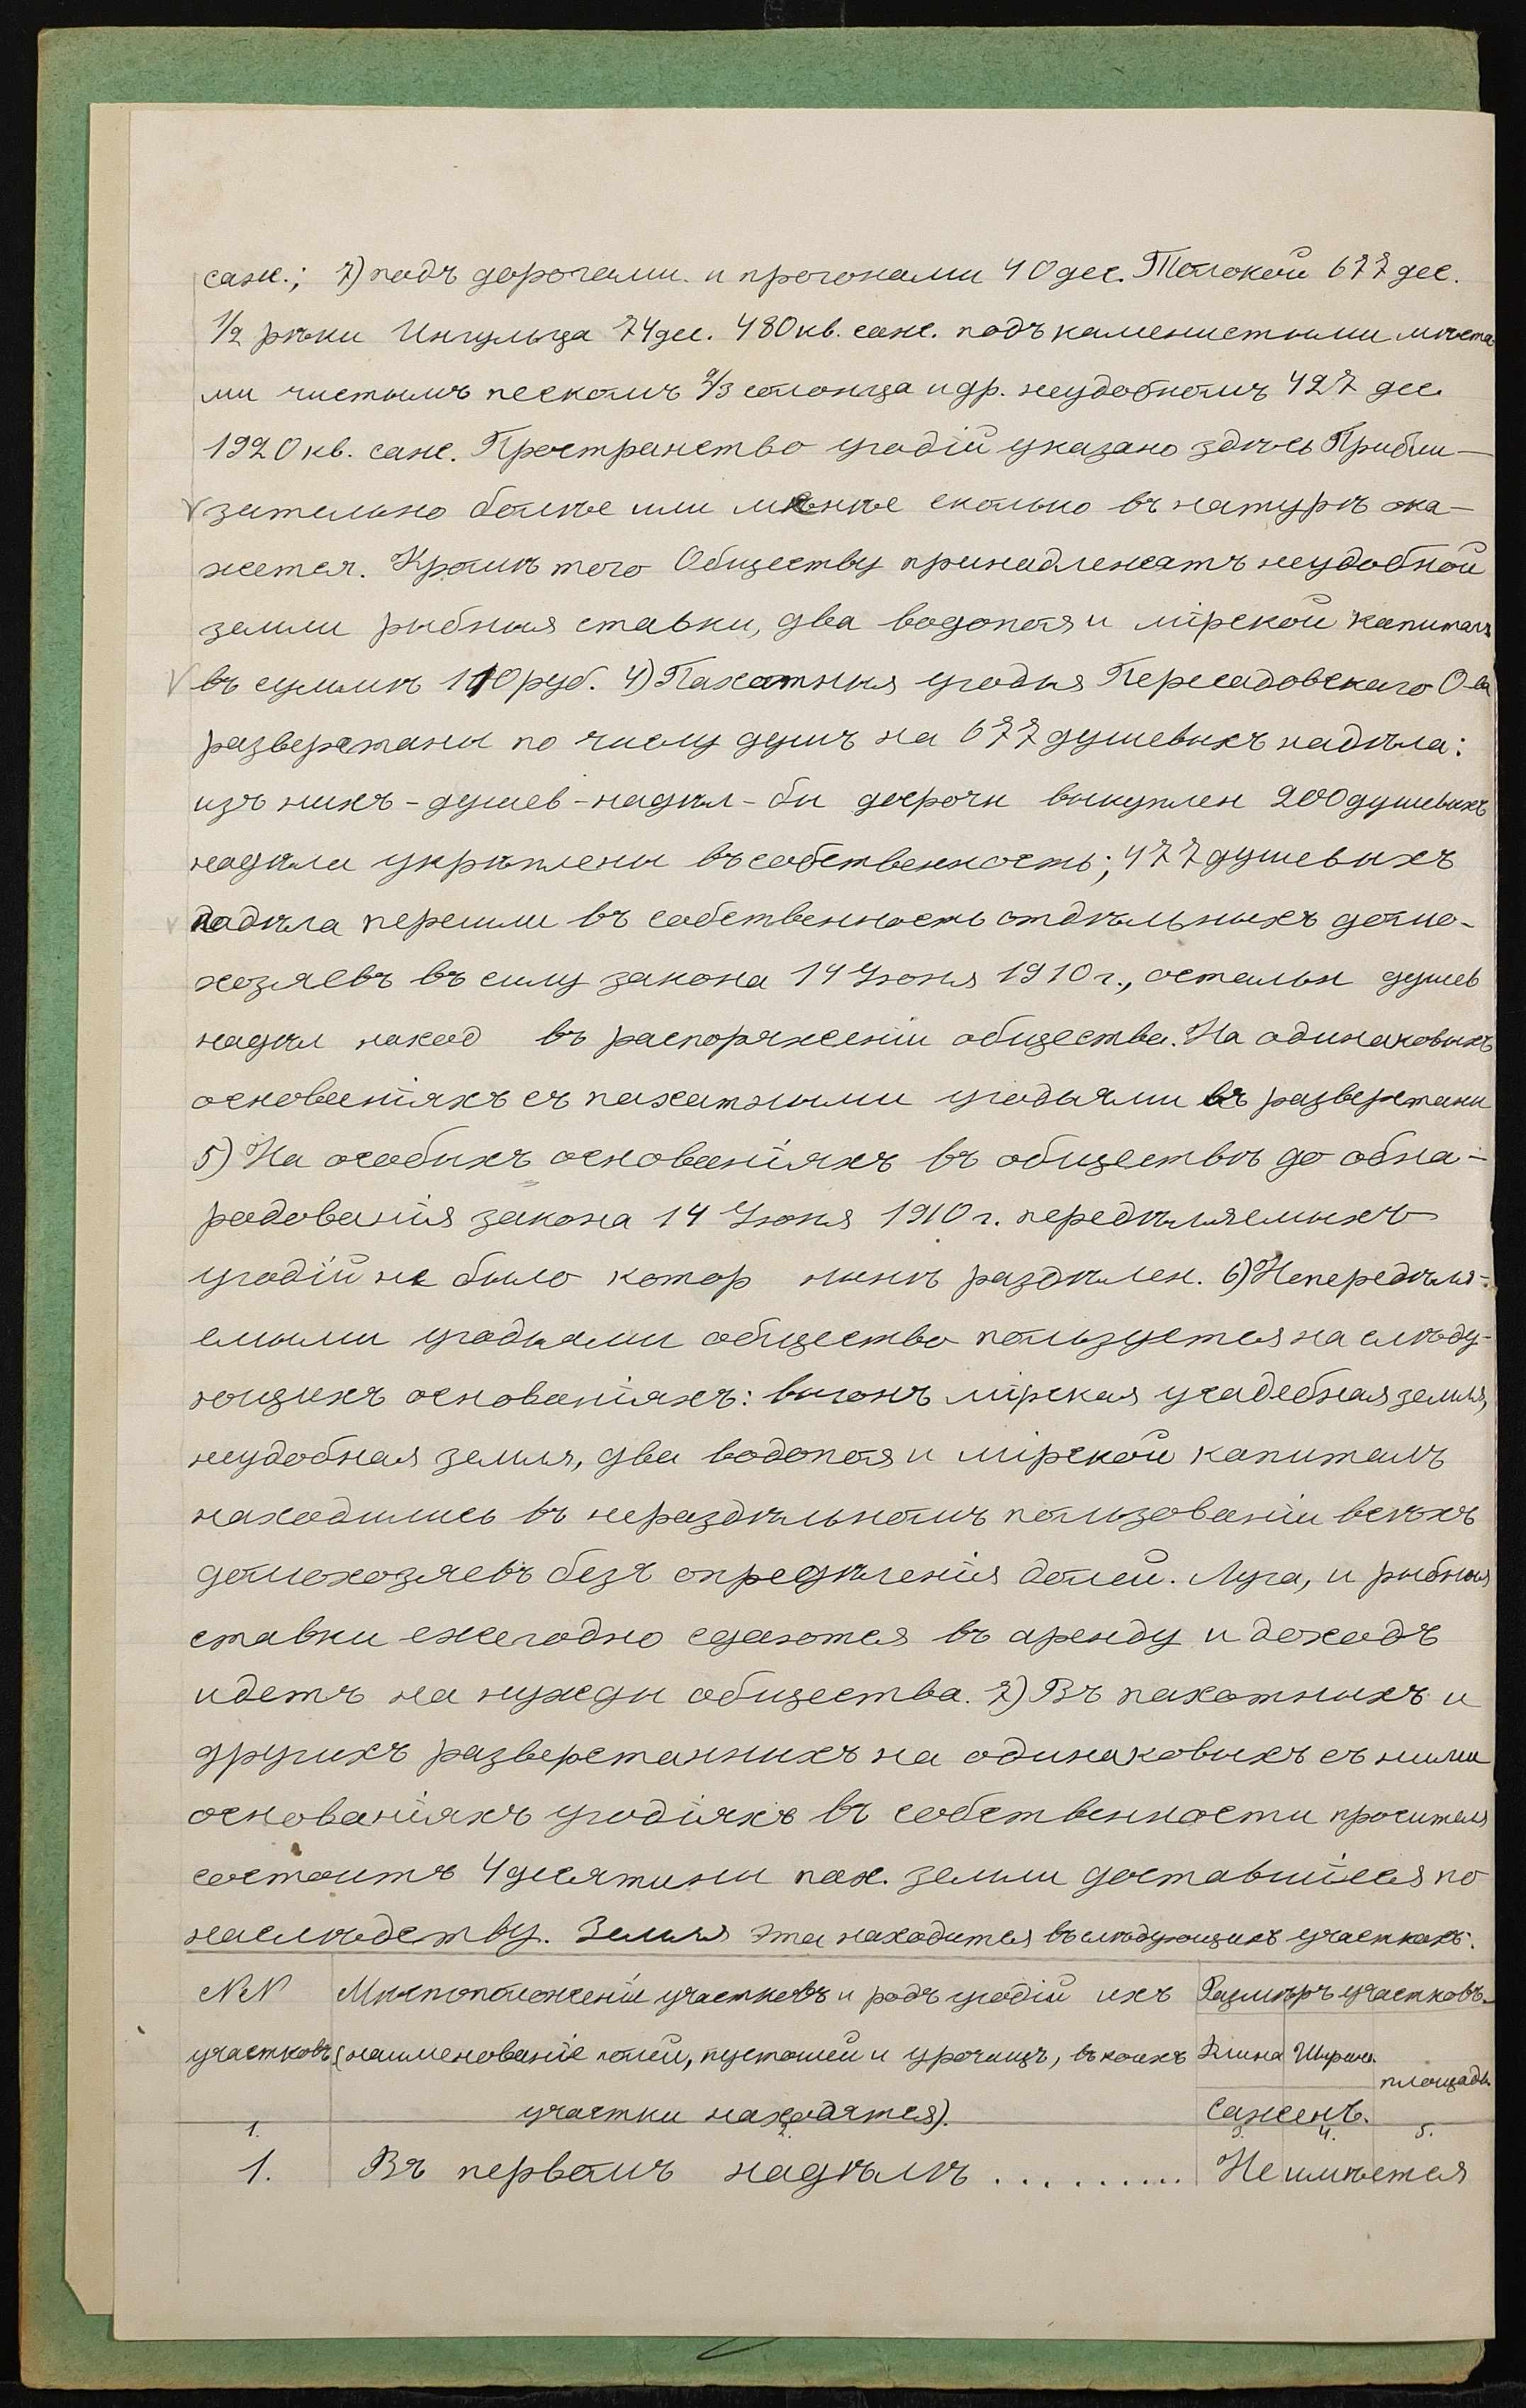 саж.; 7) подъ дорогами и прогонами 40 дес. Толокой 677 дес.
1/2 рѣки Ингульца 74 дес. 480 кв. саж. подъ каменистыми мѣста
ми чистымъ пескомъ 2/3 солонца и др. неудобномъ 427 дес.
1920 кв. саж. Пространство угодій указано здѣсь Прибли-
зительно болѣе или менѣе сколько въ натурѣ ока-
жется. Кромѣ того Обществу принадлежатъ неудобной
земли рыбныя ставки, два водопоя и мірской капиталъ
въ суммѣ 110 руб. 4) Пахатныя угодья Пересадовскаго О-ва
разверстаны по числу душъ на 677 душевыхъ надѣла:
изъ нихъ - душев - надѣл - бы досрочн выкуплен 200 душевыхъ
надѣла укрѣплены въ собственность; 477 душевыхъ
надѣла перешли въ собственность отдѣльныхъ домо-
хозяевъ въ силу закона 14 Іюня 1910 г., остальн душев
надѣл наход въ распоряженіи общества. На одинаковыхъ
основаніяхъ съ пахатными угодьями въ разверстани
5) На особыхъ основаніяхъ въ обществѣ до обна-
радованія закона 14 Іюня 1910 г. передѣляемыхъ
угодій не было котор нынѣ раздѣлен. 6) Непередѣля-
емыми угодьями общество пользуется на слѣду-
ющихъ основаніяхъ: выгонъ мірская усадебная земля,
неудобная земля, два водопоя и мірской капиталъ
находились въ нераздѣльномъ пользованіи всѣхъ
домохозяевъ безъ опредѣленія долей. Луга, и рыбныя
ставки ежегодно сдаются въ аренду и доходъ
идетъ на нужды общества. 7) Въ пахотныхъ и
другихъ разверстанныхъ на одинаковыхъ съ ними
основаніяхъ угодіяхъ въ собственности просителя
состоитъ 4 десятины пах. земли доставшіяся по
наслѣдству. Земля эта находится въ слѣдующихъ участкахъ:
№№ Мѣстоположеніи участковъ и родъ угодій ихъ Размѣръ участковъ.
участковъ (наименованіе полей, пустошей и урочищъ, въ коихъ Длина Ширин. площадь
участки находятся). Сажень.
1. 2. 3. 4. 5.
1. Въ первомъ надѣлѣ .......... Не имѣется